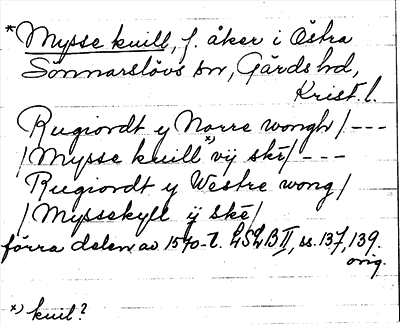 *Mysse kuill, f. åker i Östra
Sönnarslövs sn, Gärds hd,
Krist. l.
Rugiordt y Norre wongh/ ---
/Mysse kuill*) vij ske/ ---
Rugiordt y Westre wong/
/Myssekyll ij ske/
förra delen av 1570-t. LSLB II, ss. 137, 139.
orig.
*) kuil?